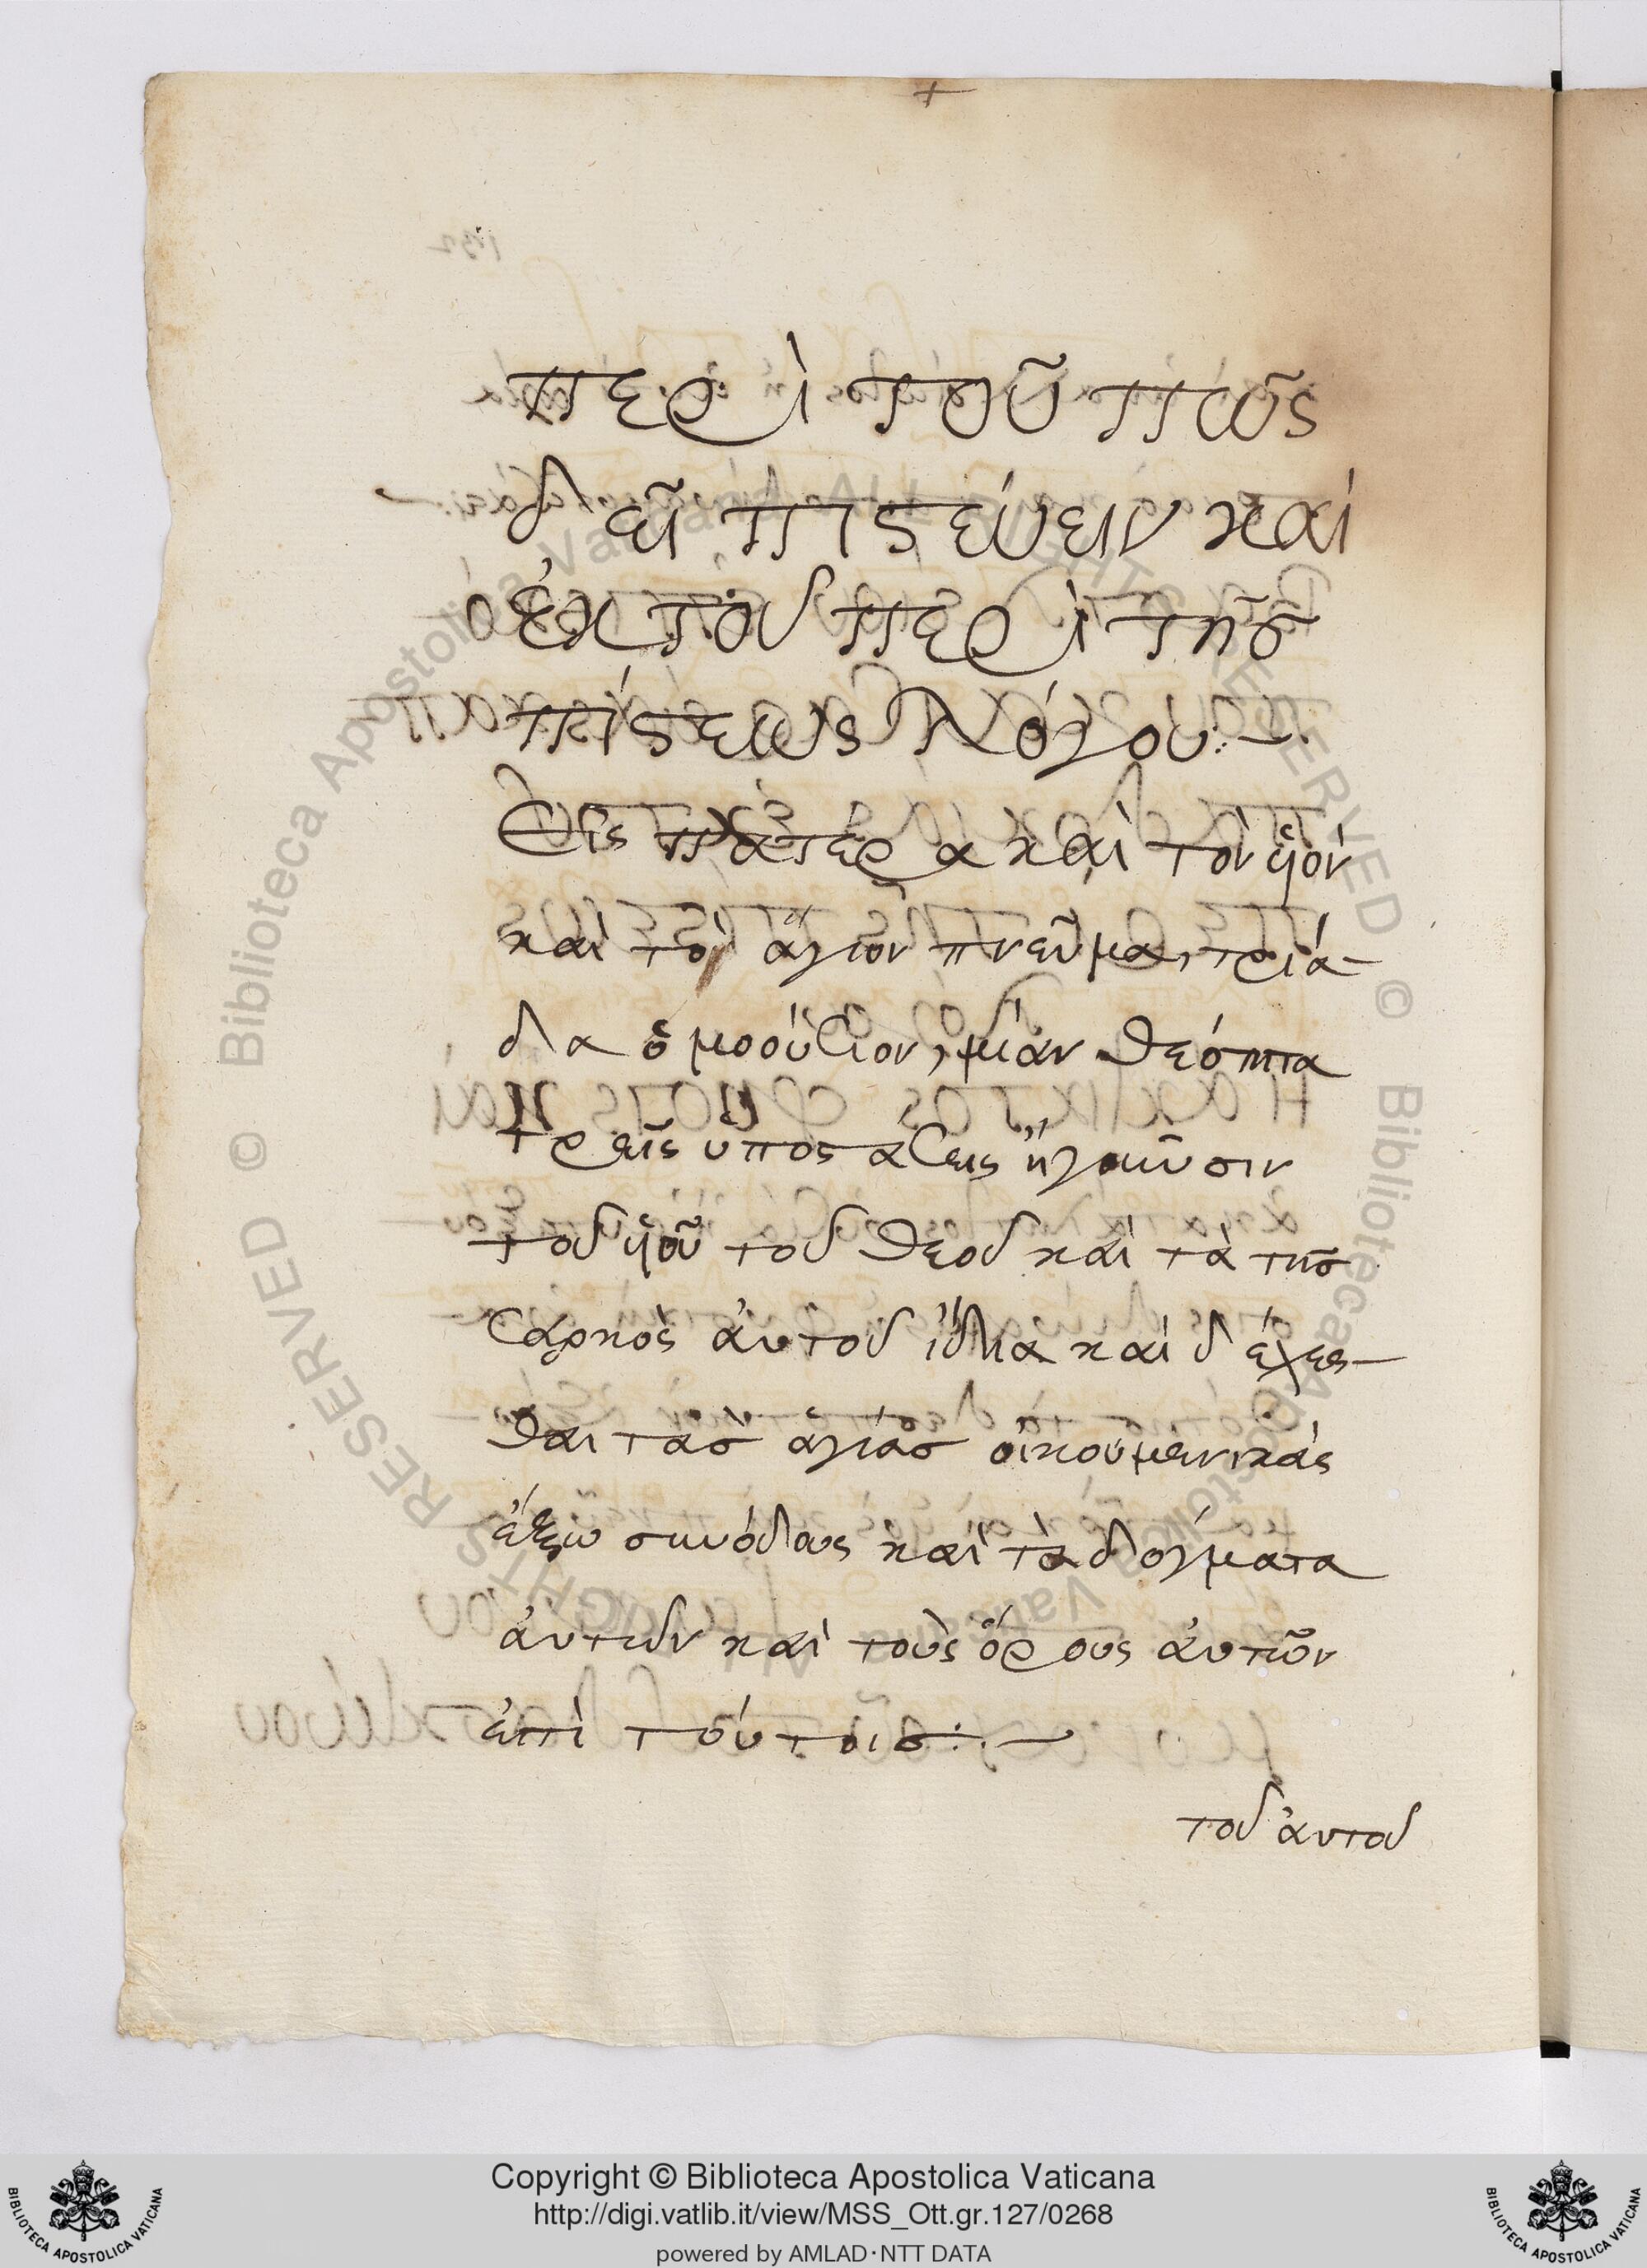 περὶ τοῦ πῶς
δεῖ πιστεύειν καὶ
ἐκ τοῦ περὶ τῆς
πίστεως λόγου:-
Εἰς πατέρα καὶ τὸν ὑὸν
καὶ τὸ ἅγιον πνεῦμα, τριά-
δα ὁμοούσιον, μίαν θεότητα
τρεῖς ὑποστάσεις
τοῦ ὑοῦ τοῦ θεοῦ καὶ τὰ τῆς
σαρκὸς ἀυτοῦ ἴδια καὶ δέχεσ-
θαι τὰσ ἁγίασ οἰκουμενικάς
ἔξω συνόδους καὶ τὰ δόγματα
ἀυτῶν καὶ τοὺς ὅρους ἀυτῶν
ἐπὶ τούτοισ:-
τοῦ ἀυτοῦ
Copyright © Biblioteca Apostolica Vaticana
http://digi.vatlib.it/view/MSS_Ott.gr.127/0268
powered by AMLAD·NTT DATA
BIBLIOTECA APOSTOLICA VATICANA
BIBLIOTECA APOSTOLICA VATICANA